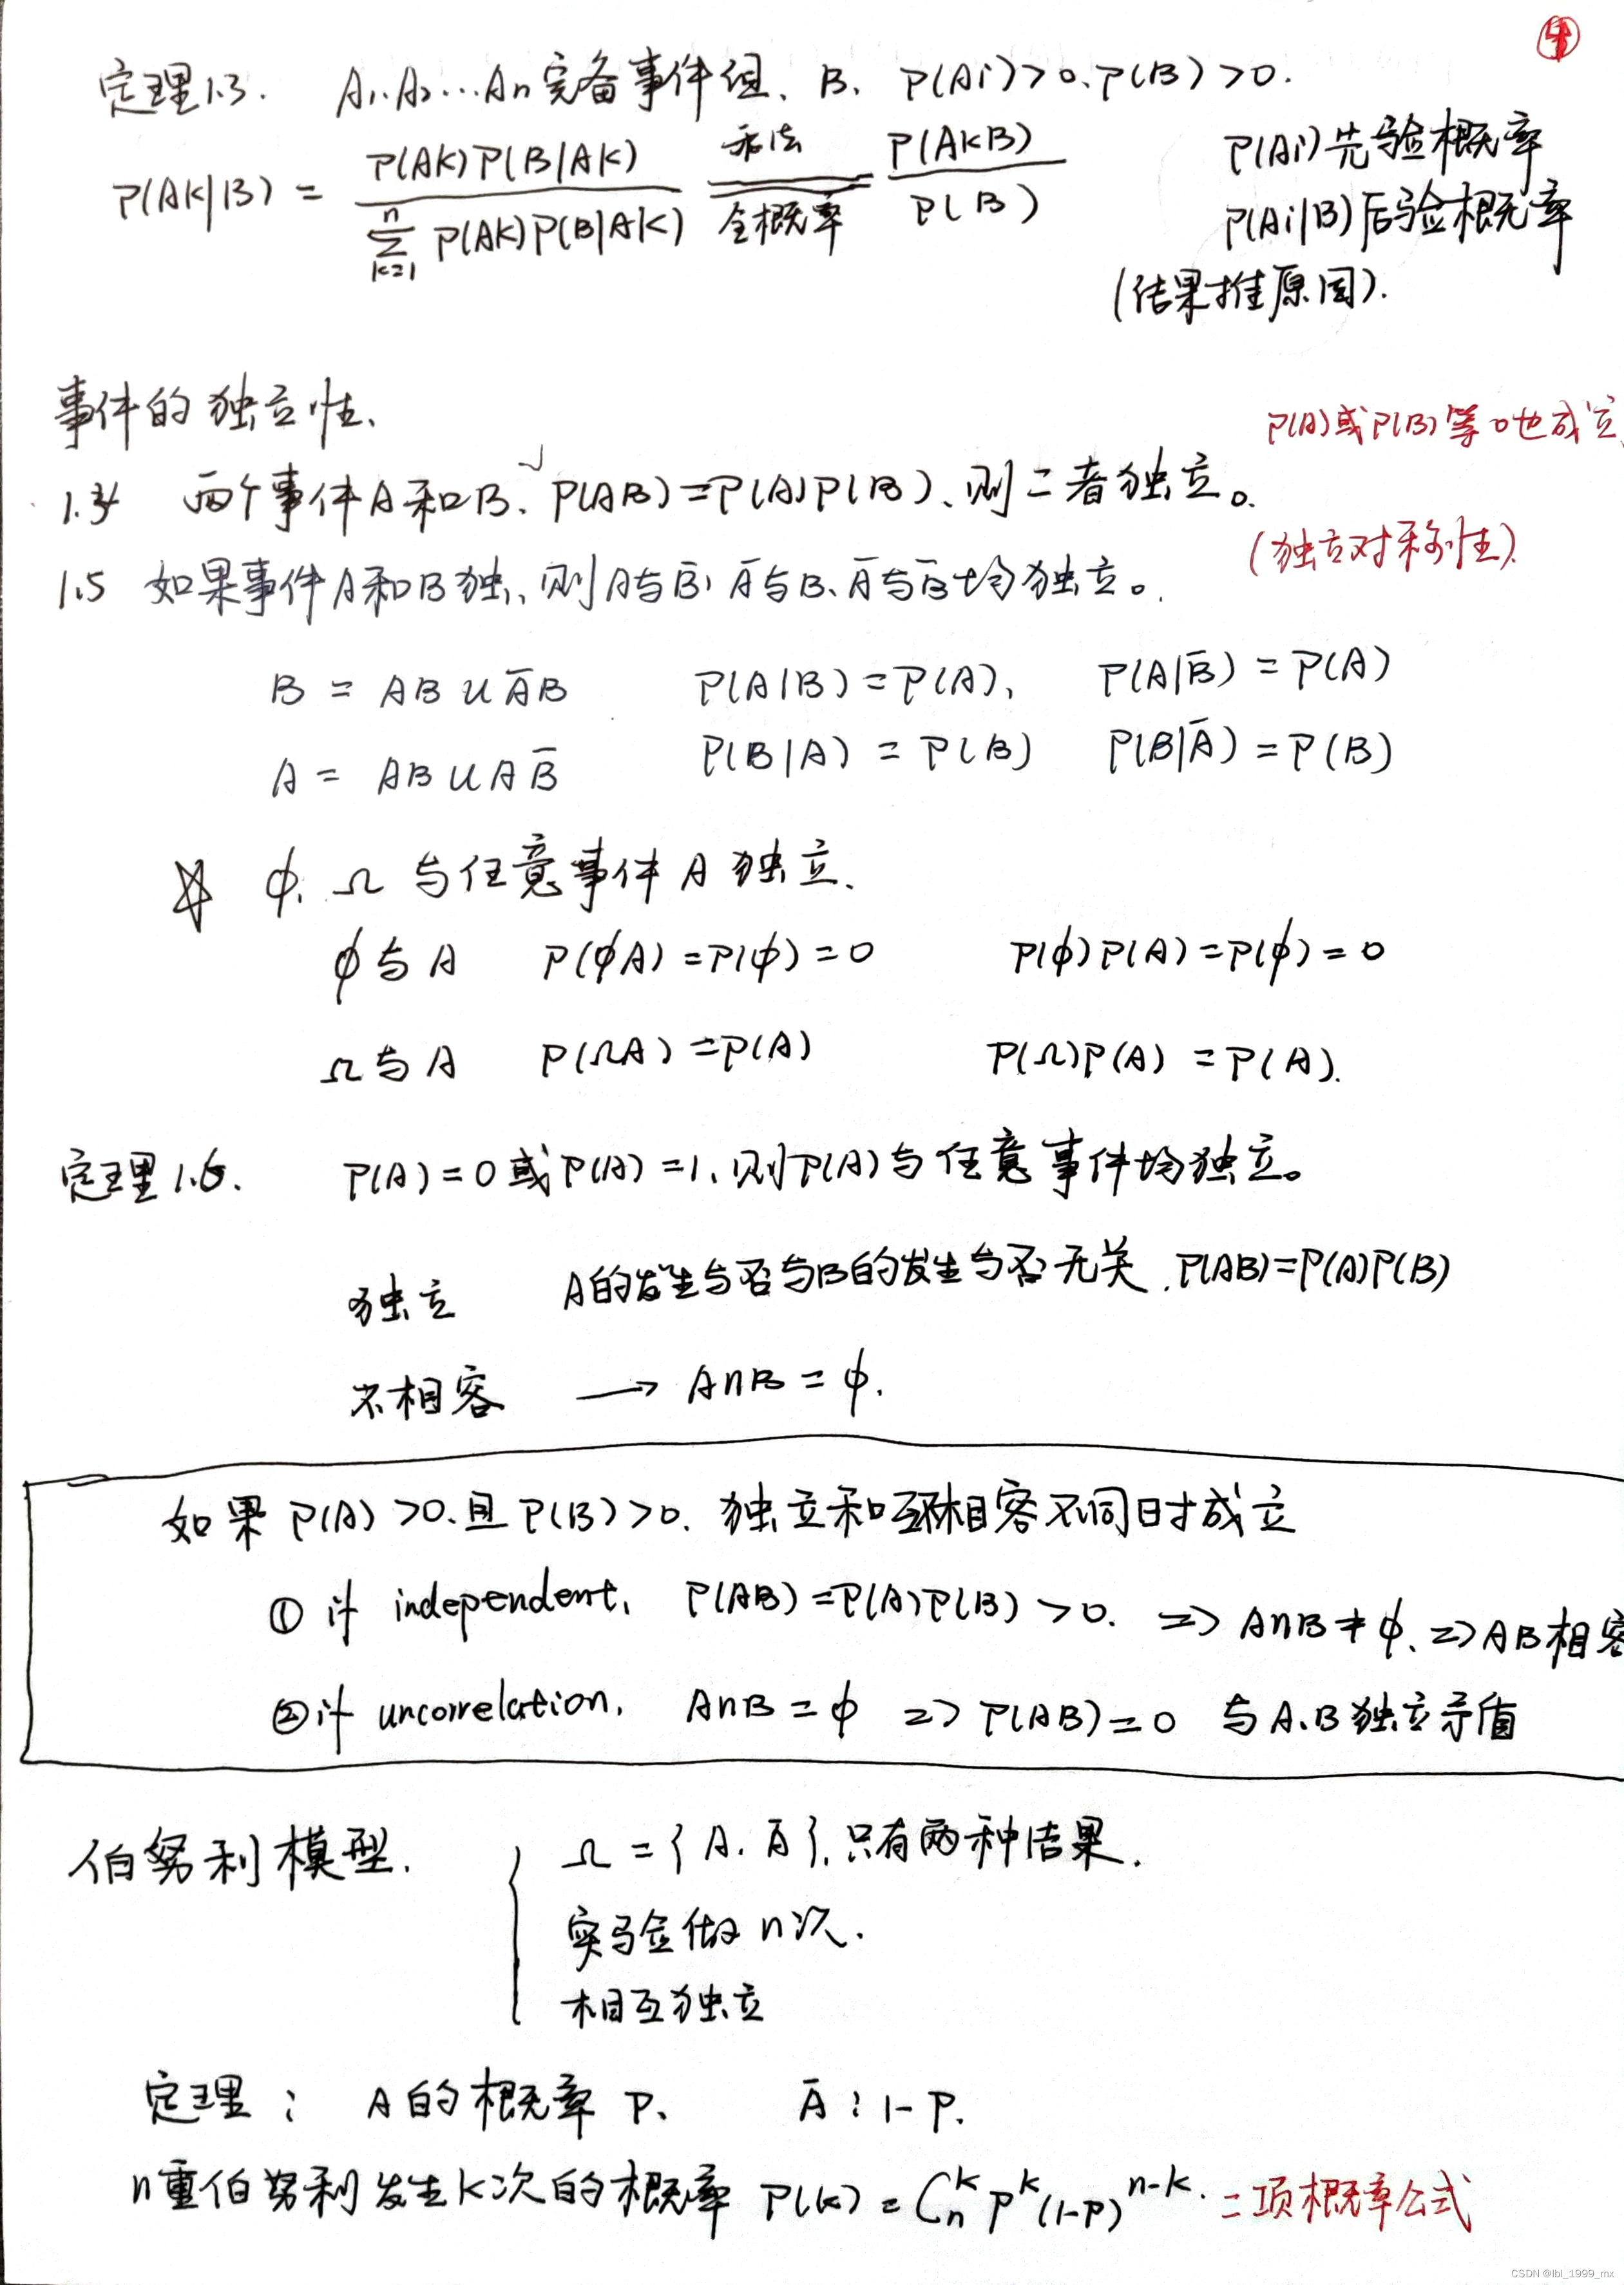 ④
定理1.3. A₁.A₂...An完备事件组、B、P(Ai)>0.P(B)>0.
P(AK|B) = P(AK)P(B|AK) / ∑ₖ₌₁ⁿ P(AK)P(B|AK) 乘法 == 全概率 P(AKB) / P(B) P(Ai)先验概率
P(Ai|B)后验概率
(结果推原因).
事件的独立性、
P(A)或P(B)等0也成立
1.4 两个事件A和B、P(AB)=P(A)P(B)、则二者独立。
(独立对称性).
1.5 如果事件A和B独.、则A与B̄、Ā与B、Ā与B̄均独立。
B = AB∪ĀB P(A|B)=P(A), P(A|B̄)=P(A)
A = AB∪AB̄ P(B|A)=P(B) P(B|Ā)=P(B)
☆ ϕ. Ω 与任意事件A独立.
ϕ与A P(ϕA)=P(ϕ)=0 P(ϕ)P(A)=P(ϕ)=0
Ω与A P(ΩA)=P(A) P(Ω)P(A)=P(A).
定理1.6. P(A)=0或P(A)=1.则P(A)与任意事件均独立。
独立 A的发生与否与B的发生与否无关.P(AB)=P(A)P(B)
不相容 → A∩B=ϕ.
如果P(A)>0.且P(B)>0. 独立和相容不同时成立
① if independent, P(AB)=P(A)P(B)>0. => A∩B≠ϕ. => AB相容
② if uncorrelation, A∩B=ϕ => P(AB)=0 与A.B独立矛盾
伯努利模型.
Ω={A.Ā}.只有两种结果.
实验做n次.
相互独立
定理: A的概率P、 Ā:1-P.
n重伯努利发生k次的概率 P(k)=Cₙᵏ Pᵏ(1-P)ⁿ⁻ᵏ. 二项概率公式
CSDN @lbl_1999_mx